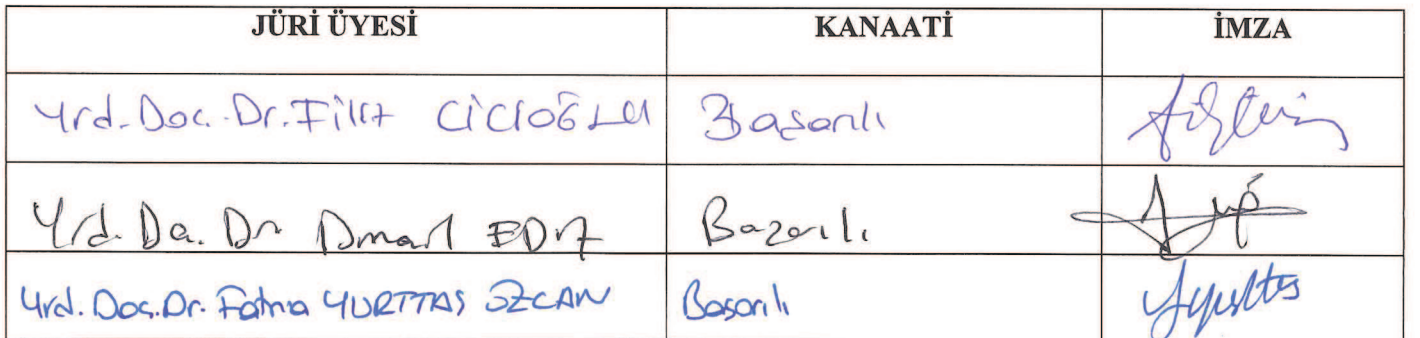 JÜRİ ÜYESİ KANAATİ İMZA
Yrd. Doc. Dr. Filiz CİCİOĞLU Başarılı
Yrd. Do. Dr. Başarılı
Yrd. Doc. Dr. Fatma YURTTAŞ ÖZCAN Başarılı